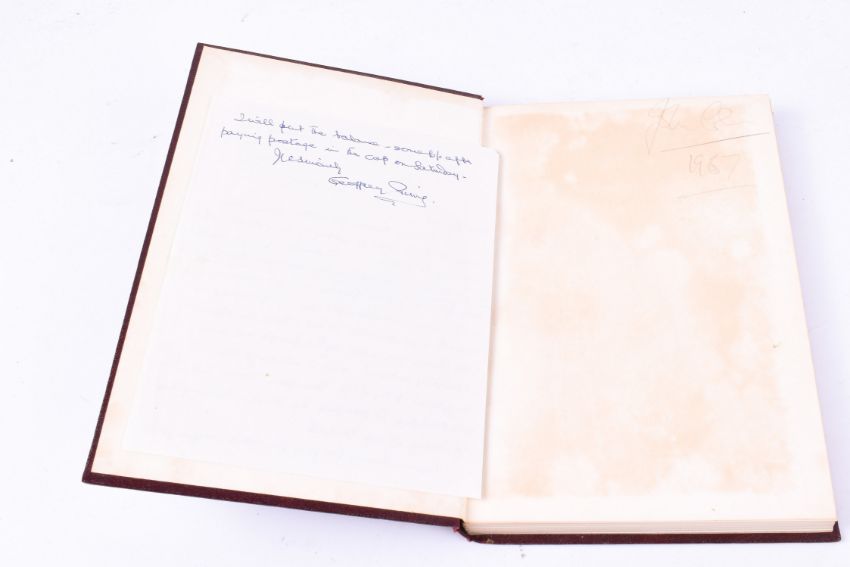 I will put the balance - some 64p after
paying postage in the cap on Saturday.
Yrs sincerely
Geoffrey
John
1967